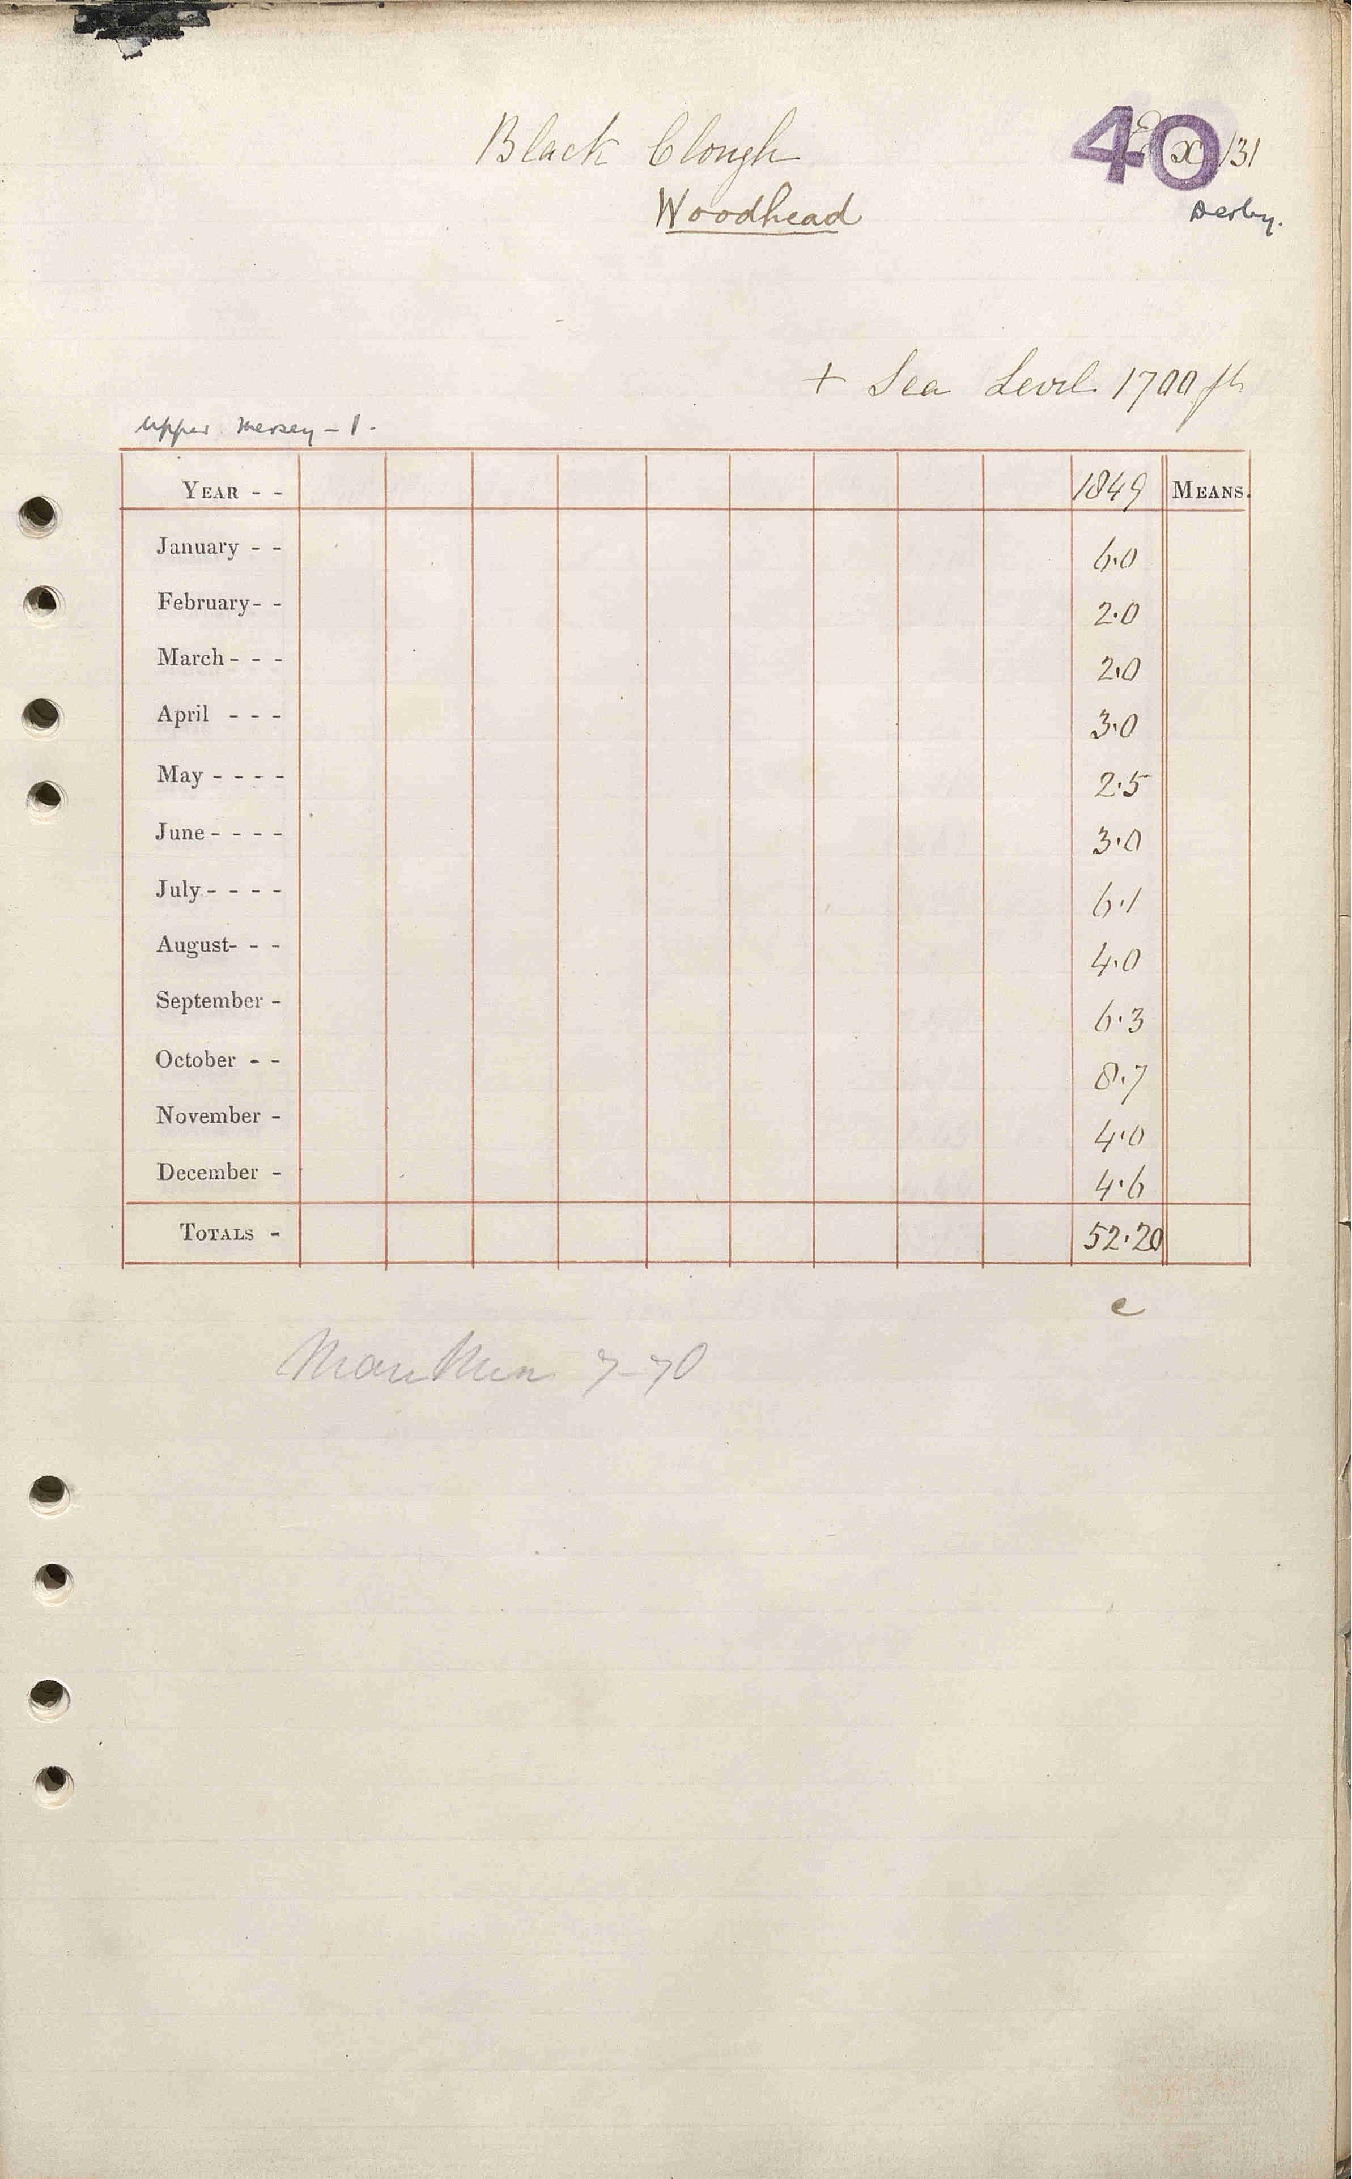 Black Clough
40
/31
Woodhead
Derby.
+ Sea Level 1700 ft
Upper Mersey - 1.
YEAR - - 1849 MEANS.
January - - 6.0
February - - 2.0
March - - - 2.0
April - - - 3.0
May - - - - 2.5
June - - - - 3.0
July - - - - 6.1
August - - - 4.0
September - 6.3
October - - 8.7
November - 4.0
December - 4.6
TOTALS - 52.20
c
7-70